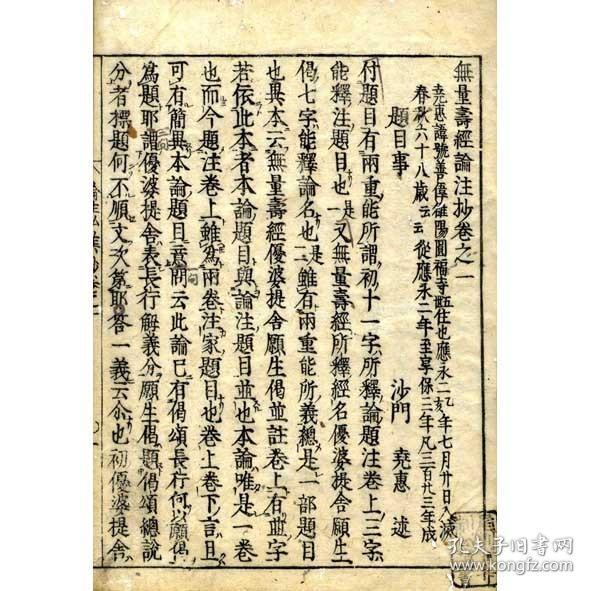 無量壽經論注抄卷之一
堯惠諱號善偉雒陽圓福寺 住也應永二乙亥年七月廿日入滅
春秋六十八歲云云從應永二年至享保三年凡三百廿三年成
題目事 沙門 堯惠 述
付題目有兩重能所謂初十一字所釋論題注卷上三字
能釋注題目也是一又無量壽經所釋經名優婆提舍願生
偈七字能釋論名也是二雖有兩重能所義總是一部題目
也異本云無量壽經優婆提舍願生偈並註卷上有並字
若依此本者本論題目與論注題目並也本論唯是一卷
也而今題注卷上雖為兩卷注家題目也卷上卷下言且
可有簡異本論題目意問云此論已有偈頌長行何以願偈
為題耶謂優婆提舍表長行解義分願生偈題偈頌總說
分者標題何不順文次第耶答一義云尒也初優婆提舍
孔夫子旧书网